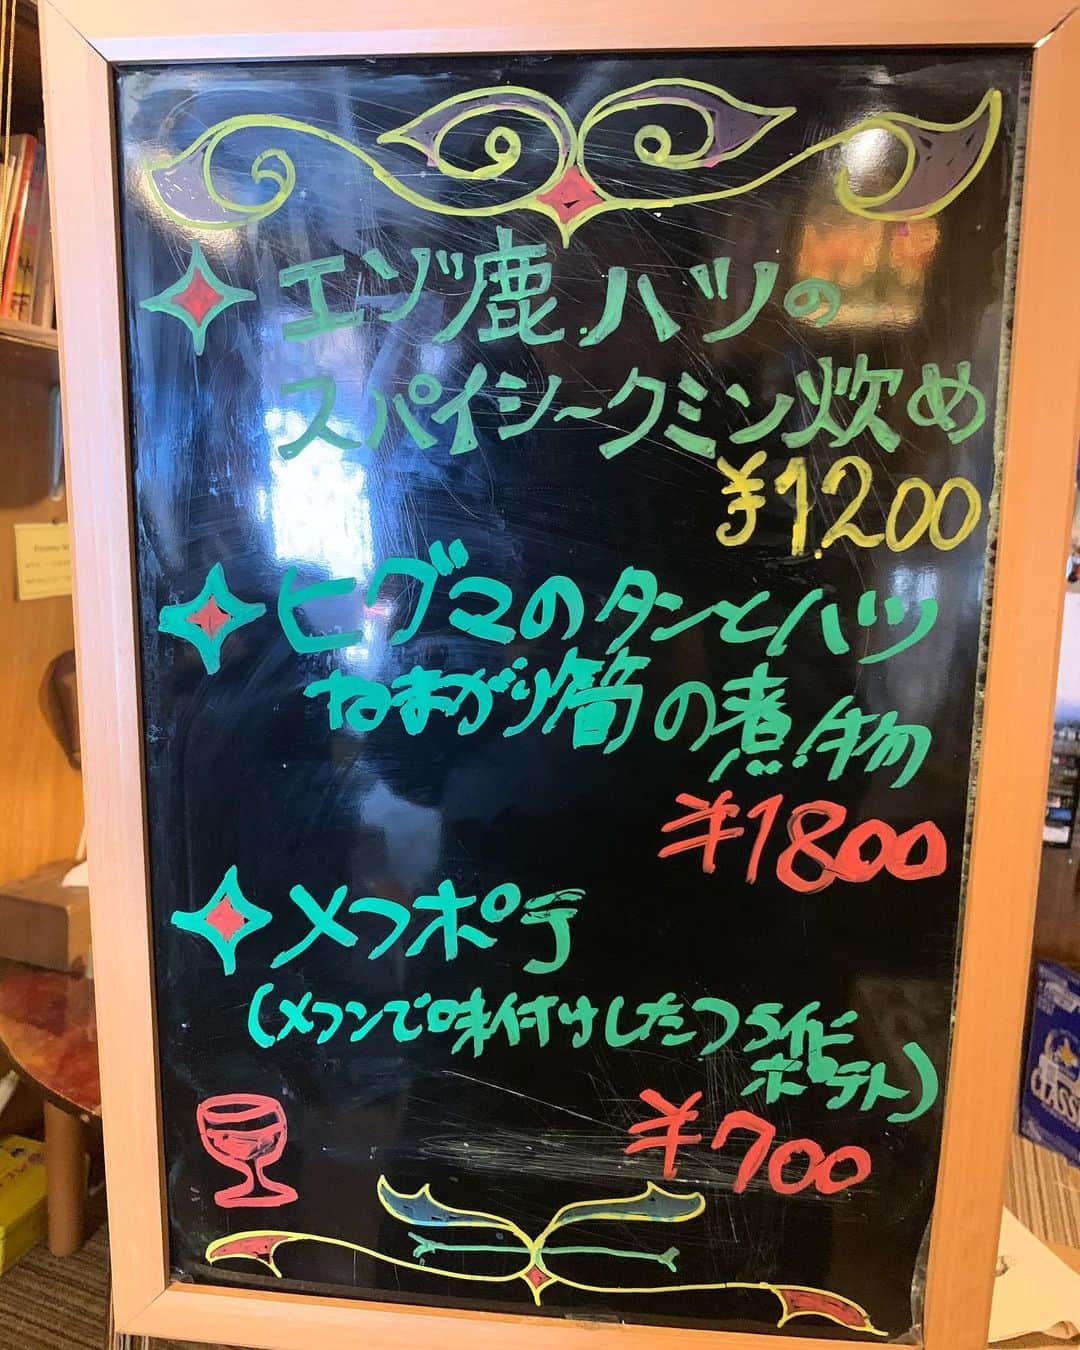 エゾ鹿ハツの
スパイシ〜クミン炒め
¥1,200
ヒグマのタンとハツ
ねまがり筍の煮物
¥1800
メフポテ
(メフンで味付けした
ポテト)
¥700
CLASSIC